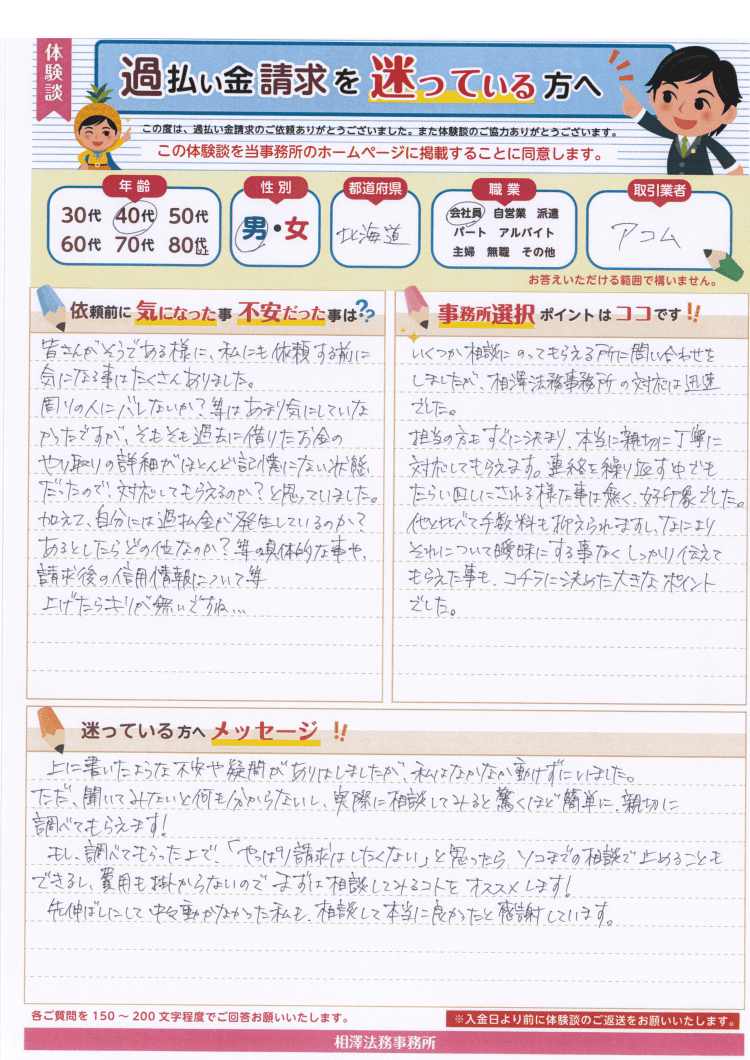 体験談
過払い金請求を迷っている方へ
この度は、過払い金請求のご依頼ありがとうございました。また体験談のご協力ありがとうございます。
この体験談を当事務所のホームページに掲載することに同意します。
年齢
30代 40代 50代
60代 70代 80代以上
性別
男・女
都道府県
北海道
職業
会社員 自営業 派遣
パート アルバイト
主婦 無職 その他
取引業者
アコム
お答えいただける範囲で構いません。
依頼前に気になった事 不安だった事は??
皆さんがそうである様に、私にも依頼する前に
気になる事はたくさんありました。
周りの人にバレないか？等はあまり気にしていな
かったですが、そもそも過去に借りたお金の
やり取りの詳細がほとんど記憶にない状態
だったので、対応してもらえるのか？と思っていました。
加えて、自分には過払金が発生しているのか？
あるとしたらどの位なのか？等の具体的な事や、
請求後の信用情報について等
上げたらキリが無いですね...
事務所選択ポイントはココです!!
いくつか相談にのってもらえる所に問い合わせを
しましたが、相澤法務事務所の対応は迅速
でした。
担当の方もすぐに決まり、本当に親切に丁寧に
対応してもらえます。連絡を繰り返す中でも
たらい回しにされる様な事は無く、好印象でした。
他と比べて手数料も抑えられますし、なにより
それについて曖昧にする事なくしっかり伝えて
もらえた事も、コチラに決めた大きなポイント
でした。
迷っている方へメッセージ!!
上に書いたような不安や疑問がありはしましたが、私はなかなか動けずにいました。
ただ、聞いてみないと何も分からないし、実際に相談してみると驚くほど簡単に、親切に
調べてもらえます！
もし、調べてもらった上で、「やっぱり請求はしたくない」と思ったら、ソコまでの相談で止めることも
できるし、費用も掛からないのでまずは相談してみるコトをオススメします！
先伸ばしにして中々動かなかった私も、相談して本当に良かったと感謝しています。
各ご質問を150～200文字程度でご回答お願いいたします。
※入金日より前に体験談のご返送をお願いいたします。
相澤法務事務所